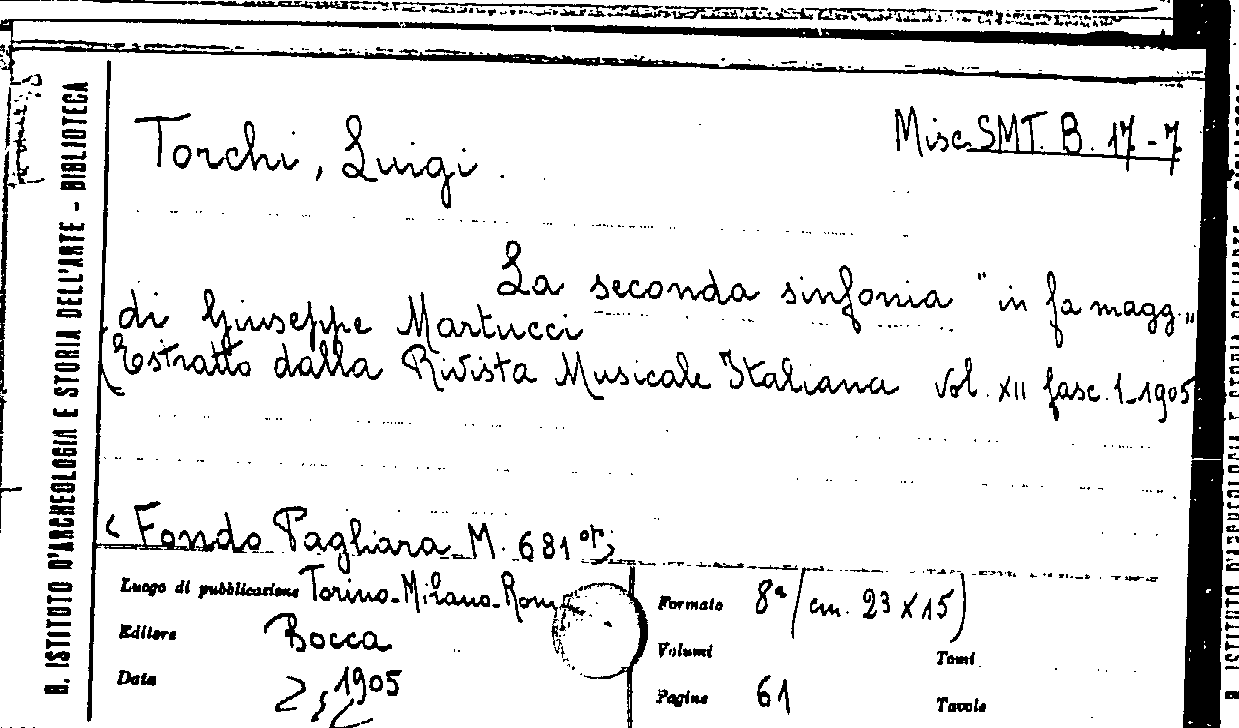 Torchi, Luigi.
Misc. SMT. B. 17-7
La seconda sinfonia "in fa magg."
di Giuseppe Martucci
(Estratto dalla Rivista Musicale Italiana vol. XII fasc. 1-1905
(Fondo Pagliara M. 681
Luogo di pubblicazione Torino-Milano-Roma
Editore Bocca
Data 1905
Formato 8ª (cm. 23 x 15)
Volumi
Tomi
Pagine 61
Tavole
B. ISTITUTO D'ARCHEOLOGIA E STORIA DELL'ARTE - BIBLIOTECA